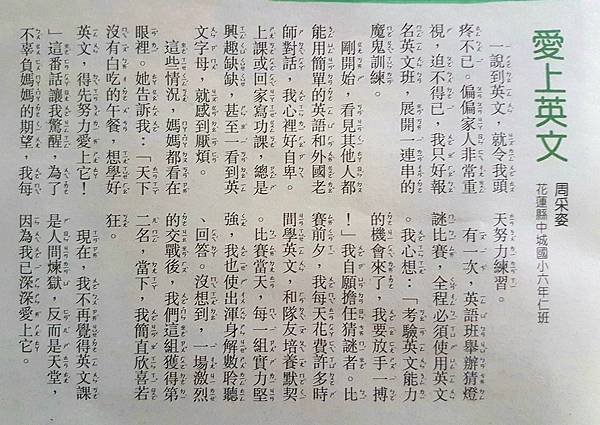 愛上英文
周采姿
花蓮縣中城國小六年仁班
一說到英文，就令我頭
疼不已。偏偏家人非常重
視，迫不得已，我只好報
名英文班，展開一連串的
魔鬼訓練。
剛開始，看見其他人都
能用簡單的英語和外國老
師對話，我心裡好自卑。
上課或回家寫功課，總是
興趣缺缺，甚至一看到英
文字母，就感到厭煩。
這些情況，媽媽都看在
眼裡。她告訴我：「天下
沒有白吃的午餐，想學好
英文，得先努力愛上它！
」這番話讓我驚醒，為了
不辜負媽媽的期望，我每
天努力練習。
有一次，英語班舉辦猜燈
謎比賽，全程必須使用英文
。我心想：「考驗英文能力
的機會來了，我要放手一搏
！」我自願擔任猜謎者。比
賽前夕，我每天花費許多時
間學英文，和隊友培養默契
。比賽當天，每一組實力堅
強，我也使出渾身解數聆聽
、回答。沒想到，一場激烈
的交戰後，我們這組獲得第
二名，當下，我簡直欣喜若
狂。
現在，我不再覺得英文課
是人間煉獄，反而是天堂，
因為我已深深愛上它。